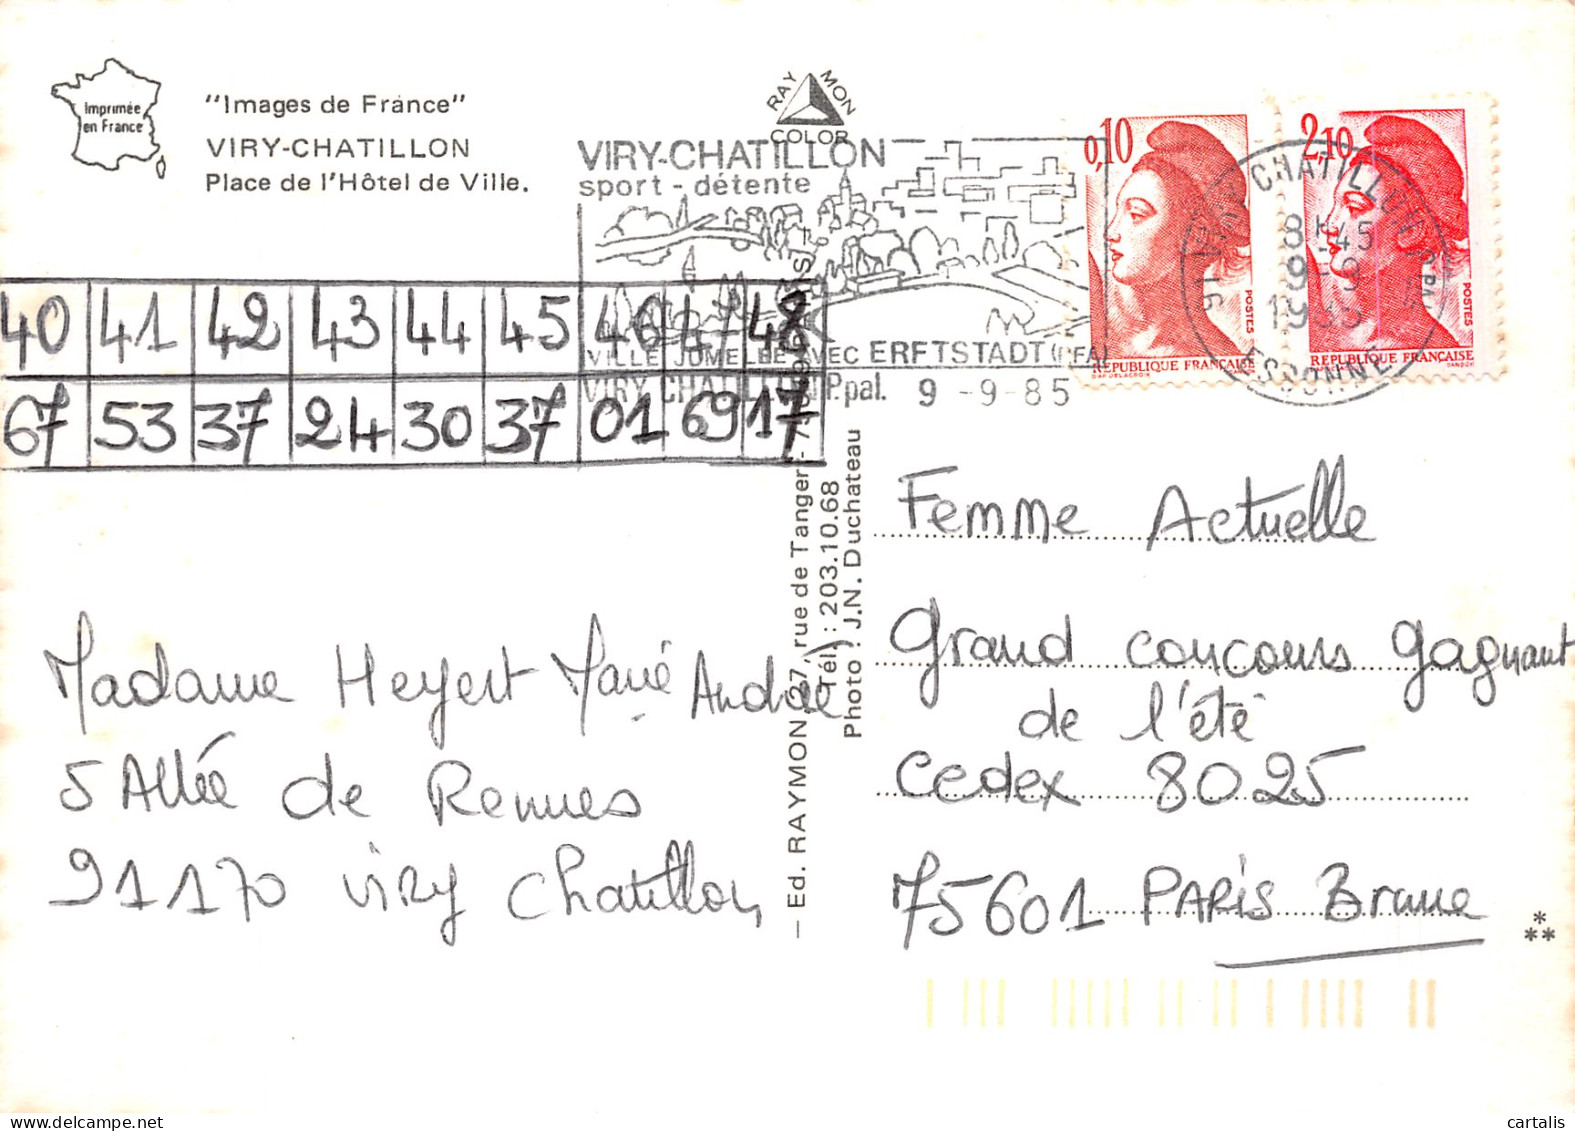 Imprimée
en France
"Images de France"
VIRY-CHATILLON
Place de l'Hôtel de Ville.
RAYMON
COLOR
VIRY-CHATILLON
sport - détente
VILLE JUMELÉE AVEC ERFTSTADT (RFA)
VIRY CHATILLON P.pal. 9 -9-85
0,10
REPUBLIQUE FRANÇAISE
POSTES
2,10
REPUBLIQUE FRANÇAISE
POSTES
91 VIRY CHATILLON PPAL
8H45
9-9
1985
ESSONNE
40 41 42 43 44 45 46 47 48
67 53 37 24 30 37 01 69 17
Madame Heyert Marie Andrée
5 Allée de Rennes
91170 Viry Chatillon
— Ed. RAYMON 27, rue de Tanger - PARIS
Tél. : 203.10.68
Photo : J.N. Duchateau
Femme Actuelle
Grand concours gagnant
de l'été
Cedex 8025
75601 PARIS Brune
***
cartalis